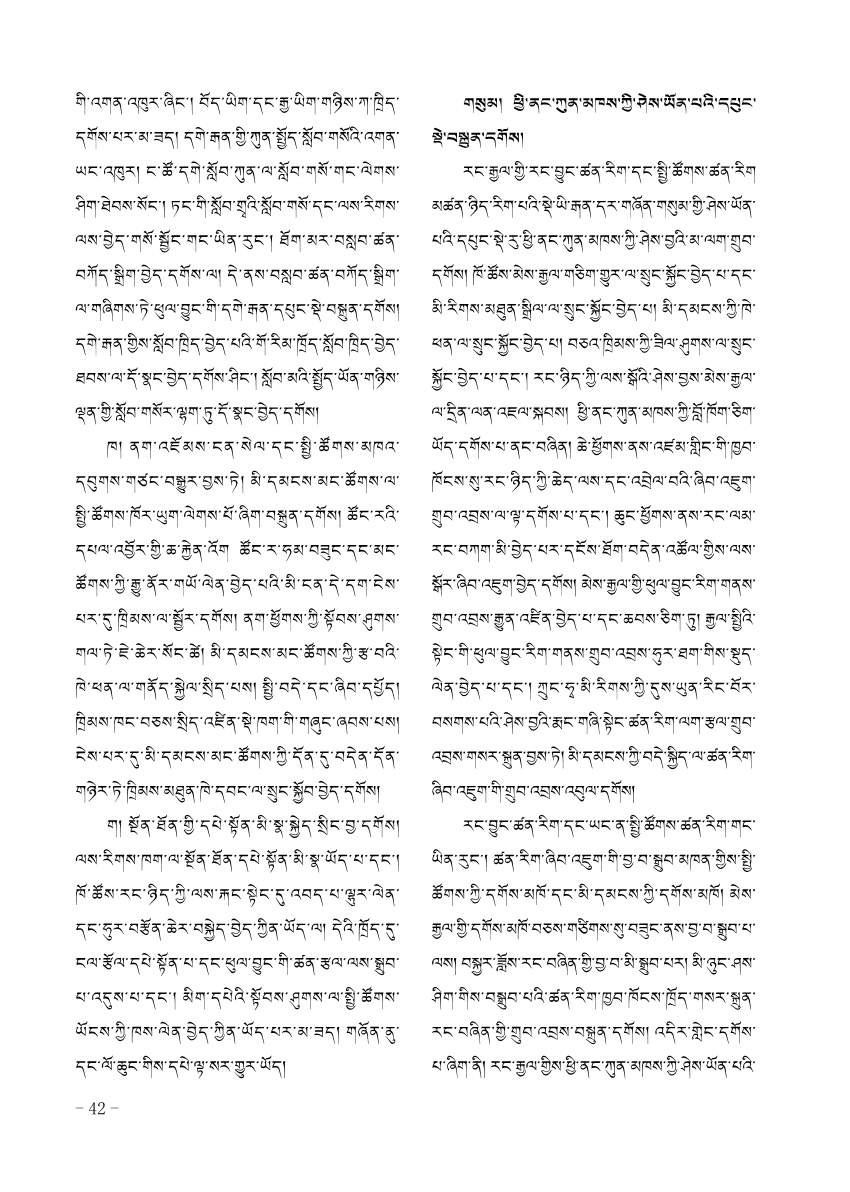 གི་འགན་འཁུར་ཞིང་། བོད་ཡིག་དང་རྒྱ་ཡིག་གཉིས་ཀ་ཁྲིད་
དགོས་པར་མ་ཟད། དགེ་རྒན་གྱི་ཀུན་སྤྱོད་སློབ་གསོའི་འགན་
ཡང་འཁུར། ང་ཚོ་དགེ་སློབ་ཀུན་ལ་སློབ་གསོ་གང་ལེགས་
ཤིག་ཐེབས་སོང་། ཏང་གི་སློབ་གྲྭའི་སློབ་གསོ་དང་ལས་རིགས་
ལས་བྱེད་གསོ་སྦྱོང་གང་ཡིན་རུང་། ཐོག་མར་བསླབ་ཚན་
བཀོད་སྒྲིག་བྱེད་དགོས་ལ། དེ་ནས་བསླབ་ཚན་བཀོད་སྒྲིག་
ལ་གཞིགས་ཏེ་ཕུལ་བྱུང་གི་དགེ་རྒན་དཔུང་སྡེ་བསྐྲུན་དགོས།
དགེ་རྒན་གྱིས་སློབ་ཁྲིད་བྱེད་པའི་གོ་རིམ་ཁྲོད་སློབ་ཁྲིད་བྱེད་
ཐབས་ལ་དོ་སྣང་བྱེད་དགོས་ཤིང་། སློབ་མའི་སྤྱོད་ཡོན་གཉིས་
ལྡན་གྱི་སློབ་གསོར་ལྷག་ཏུ་དོ་སྣང་བྱེད་དགོས།
ཁ། ནག་འཇོམས་ངན་སེལ་དང་སྤྱི་ཚོགས་མཁའ་
དབུགས་གཙང་བསྒྱུར་བྱས་ཏེ། མི་དམངས་མང་ཚོགས་ལ་
སྤྱི་ཚོགས་ཁོར་ཡུག་ལེགས་པོ་ཞིག་བསྐྲུན་དགོས། ཚོང་རའི་
དཔལ་འབྱོར་གྱི་ཆ་རྐྱེན་འོག ཚོང་ར་ཧམ་བཟུང་དང་མང་
ཚོགས་ཀྱི་རྒྱུ་ནོར་གཡོ་ལེན་བྱེད་པའི་མི་ངན་དེ་དག་ངེས་
པར་དུ་ཁྲིམས་ལ་སྦྱོར་དགོས། ནག་ཕྱོགས་ཀྱི་སྟོབས་ཤུགས་
གལ་ཏེ་ཇེ་ཆེར་སོང་ཚེ། མི་དམངས་མང་ཚོགས་ཀྱི་རྩ་བའི་
ཁེ་ཕན་ལ་གནོད་སྐྱེལ་སྲིད་པས། སྤྱི་བདེ་དང་ཞིབ་དཔྱོད།
ཁྲིམས་ཁང་བཅས་སྲིད་འཛིན་སྡེ་ཁག་གི་གཞུང་ཞབས་པས།
ངེས་པར་དུ་མི་དམངས་མང་ཚོགས་ཀྱི་དོན་དུ་བདེན་དོན་
གཉེར་ཏེ་ཁྲིམས་མཐུན་ཁེ་དབང་ལ་སྲུང་སྐྱོབ་བྱེད་དགོས།
ག། སྔོན་ཐོན་གྱི་དཔེ་སྟོན་མི་སྣ་སྐྱེད་སྲིང་བྱ་དགོས།
ལས་རིགས་ཁག་ལ་སྔོན་ཐོན་དཔེ་སྟོན་མི་སྣ་ཡོད་པ་དང་།
ཁོ་ཚོས་རང་ཉིད་ཀྱི་ལས་རྐང་སྟེང་དུ་འབད་པ་ལྷུར་ལེན་
དང་ཧུར་བརྩོན་ཆེར་བསྐྱེད་བྱེད་ཀྱིན་ཡོད་ལ། དེའི་ཁྲོད་དུ་
ངལ་རྩོལ་དཔེ་སྟོན་པ་དང་ཕུལ་བྱུང་གི་ཚན་རྩལ་ལས་སྒྲུབ་
པ་འདུས་པ་དང་། མིག་དཔེའི་སྟོབས་ཤུགས་ལ་སྤྱི་ཚོགས་
ཡོངས་ཀྱི་ཁས་ལེན་བྱེད་ཀྱིན་ཡོད་པར་མ་ཟད། གཞོན་ནུ་
དང་ལོ་ཆུང་གིས་དཔེ་ལྟ་སར་གྱུར་ཡོད།
གསུམ། ཕྱི་ནང་ཀུན་མཁས་ཀྱི་ཤེས་ཡོན་པའི་དཔུང་
སྡེ་བསྐྲུན་དགོས།
རང་རྒྱལ་གྱི་རང་བྱུང་ཚན་རིག་དང་སྤྱི་ཚོགས་ཚན་རིག
མཚན་ཉིད་རིག་པའི་སྡེ་ཡི་རྒན་དར་གཞོན་གསུམ་གྱི་ཤེས་ཡོན་
པའི་དཔུང་སྡེ་རུ་ཕྱི་ནང་ཀུན་མཁས་ཀྱི་ཤེས་བྱའི་མ་ལག་གྲུབ་
དགོས། ཁོ་ཚོས་མེས་རྒྱལ་གཅིག་གྱུར་ལ་སྲུང་སྐྱོང་བྱེད་པ་དང་
མི་རིགས་མཐུན་སྒྲིལ་ལ་སྲུང་སྐྱོང་བྱེད་པ། མི་དམངས་ཀྱི་ཁེ་
ཕན་ལ་སྲུང་སྐྱོང་བྱེད་པ། བཅའ་ཁྲིམས་ཀྱི་ཟིལ་ཤུགས་ལ་སྲུང་
སྐྱོང་བྱེད་པ་དང་། རང་ཉིད་ཀྱི་ལས་སྒོའི་ཤེས་བྱས་མེས་རྒྱལ་
ལ་དྲིན་ལན་འཇལ་སྐབས། ཕྱི་ནང་ཀུན་མཁས་ཀྱི་བློ་ཁོག་ཅིག་
ཡོད་དགོས་པ་ནང་བཞིན། ཆེ་ཕྱོགས་ནས་འཛམ་གླིང་གི་ཁྱབ་
ཁོངས་སུ་རང་ཉིད་ཀྱི་ཆེད་ལས་དང་འབྲེལ་བའི་ཞིབ་འཇུག་
གྲུབ་འབྲས་ལ་ལྟ་དགོས་པ་དང་། ཆུང་ཕྱོགས་ནས་རང་ལམ་
རང་བཀག་མི་བྱེད་པར་དངོས་ཐོག་བདེན་འཚོལ་གྱིས་ལས་
སྒོར་ཞིབ་འཇུག་བྱེད་དགོས། མེས་རྒྱལ་གྱི་ཕུལ་བྱུང་རིག་གནས་
གྲུབ་འབྲས་རྒྱུན་འཛིན་བྱེད་པ་དང་ཆབས་ཅིག་ཏུ། རྒྱལ་སྤྱིའི་
སྟེང་གི་ཕུལ་བྱུང་རིག་གནས་གྲུབ་འབྲས་ཧུར་ཐག་གིས་སྡུད་
ལེན་བྱེད་པ་དང་། ཀྲུང་ཧྭ་མི་རིགས་ཀྱི་དུས་ཡུན་རིང་བོར་
བསགས་པའི་ཤེས་བྱའི་རྨང་གཞི་སྟེང་ཚན་རིག་ལག་རྩལ་གྲུབ་
འབྲས་གསར་སྐྲུན་བྱས་ཏེ། མི་དམངས་ཀྱི་བདེ་སྐྱིད་ལ་ཚན་རིག་
ཞིབ་འཇུག་གི་གྲུབ་འབྲས་འབུལ་དགོས།
རང་བྱུང་ཚན་རིག་དང་ཡང་ན་སྤྱི་ཚོགས་ཚན་རིག་གང་
ཡིན་རུང་། ཚན་རིག་ཞིབ་འཇུག་གི་བྱ་བ་སྒྲུབ་མཁན་གྱིས་སྤྱི་
ཚོགས་ཀྱི་དགོས་མཁོ་དང་མི་དམངས་ཀྱི་དགོས་མཁོ། མེས་
རྒྱལ་གྱི་དགོས་མཁོ་བཅས་གཙིགས་སུ་བཟུང་ནས་བྱ་བ་སྒྲུབ་པ་
ལས། བསྐྱར་ཟློས་རང་བཞིན་གྱི་བྱ་བ་མི་སྒྲུབ་པར། མི་ཉུང་ཤས་
ཤིག་གིས་བསྒྲུབ་པའི་ཚན་རིག་ཁྱབ་ཁོངས་ཁྲོད་གསར་སྐྲུན་
རང་བཞིན་གྱི་གྲུབ་འབྲས་བསྐྲུན་དགོས། འདིར་གླེང་དགོས་
པ་ཞིག་ནི། རང་རྒྱལ་གྱིས་ཕྱི་ནང་ཀུན་མཁས་ཀྱི་ཤེས་ཡོན་པའི་
– 42 –